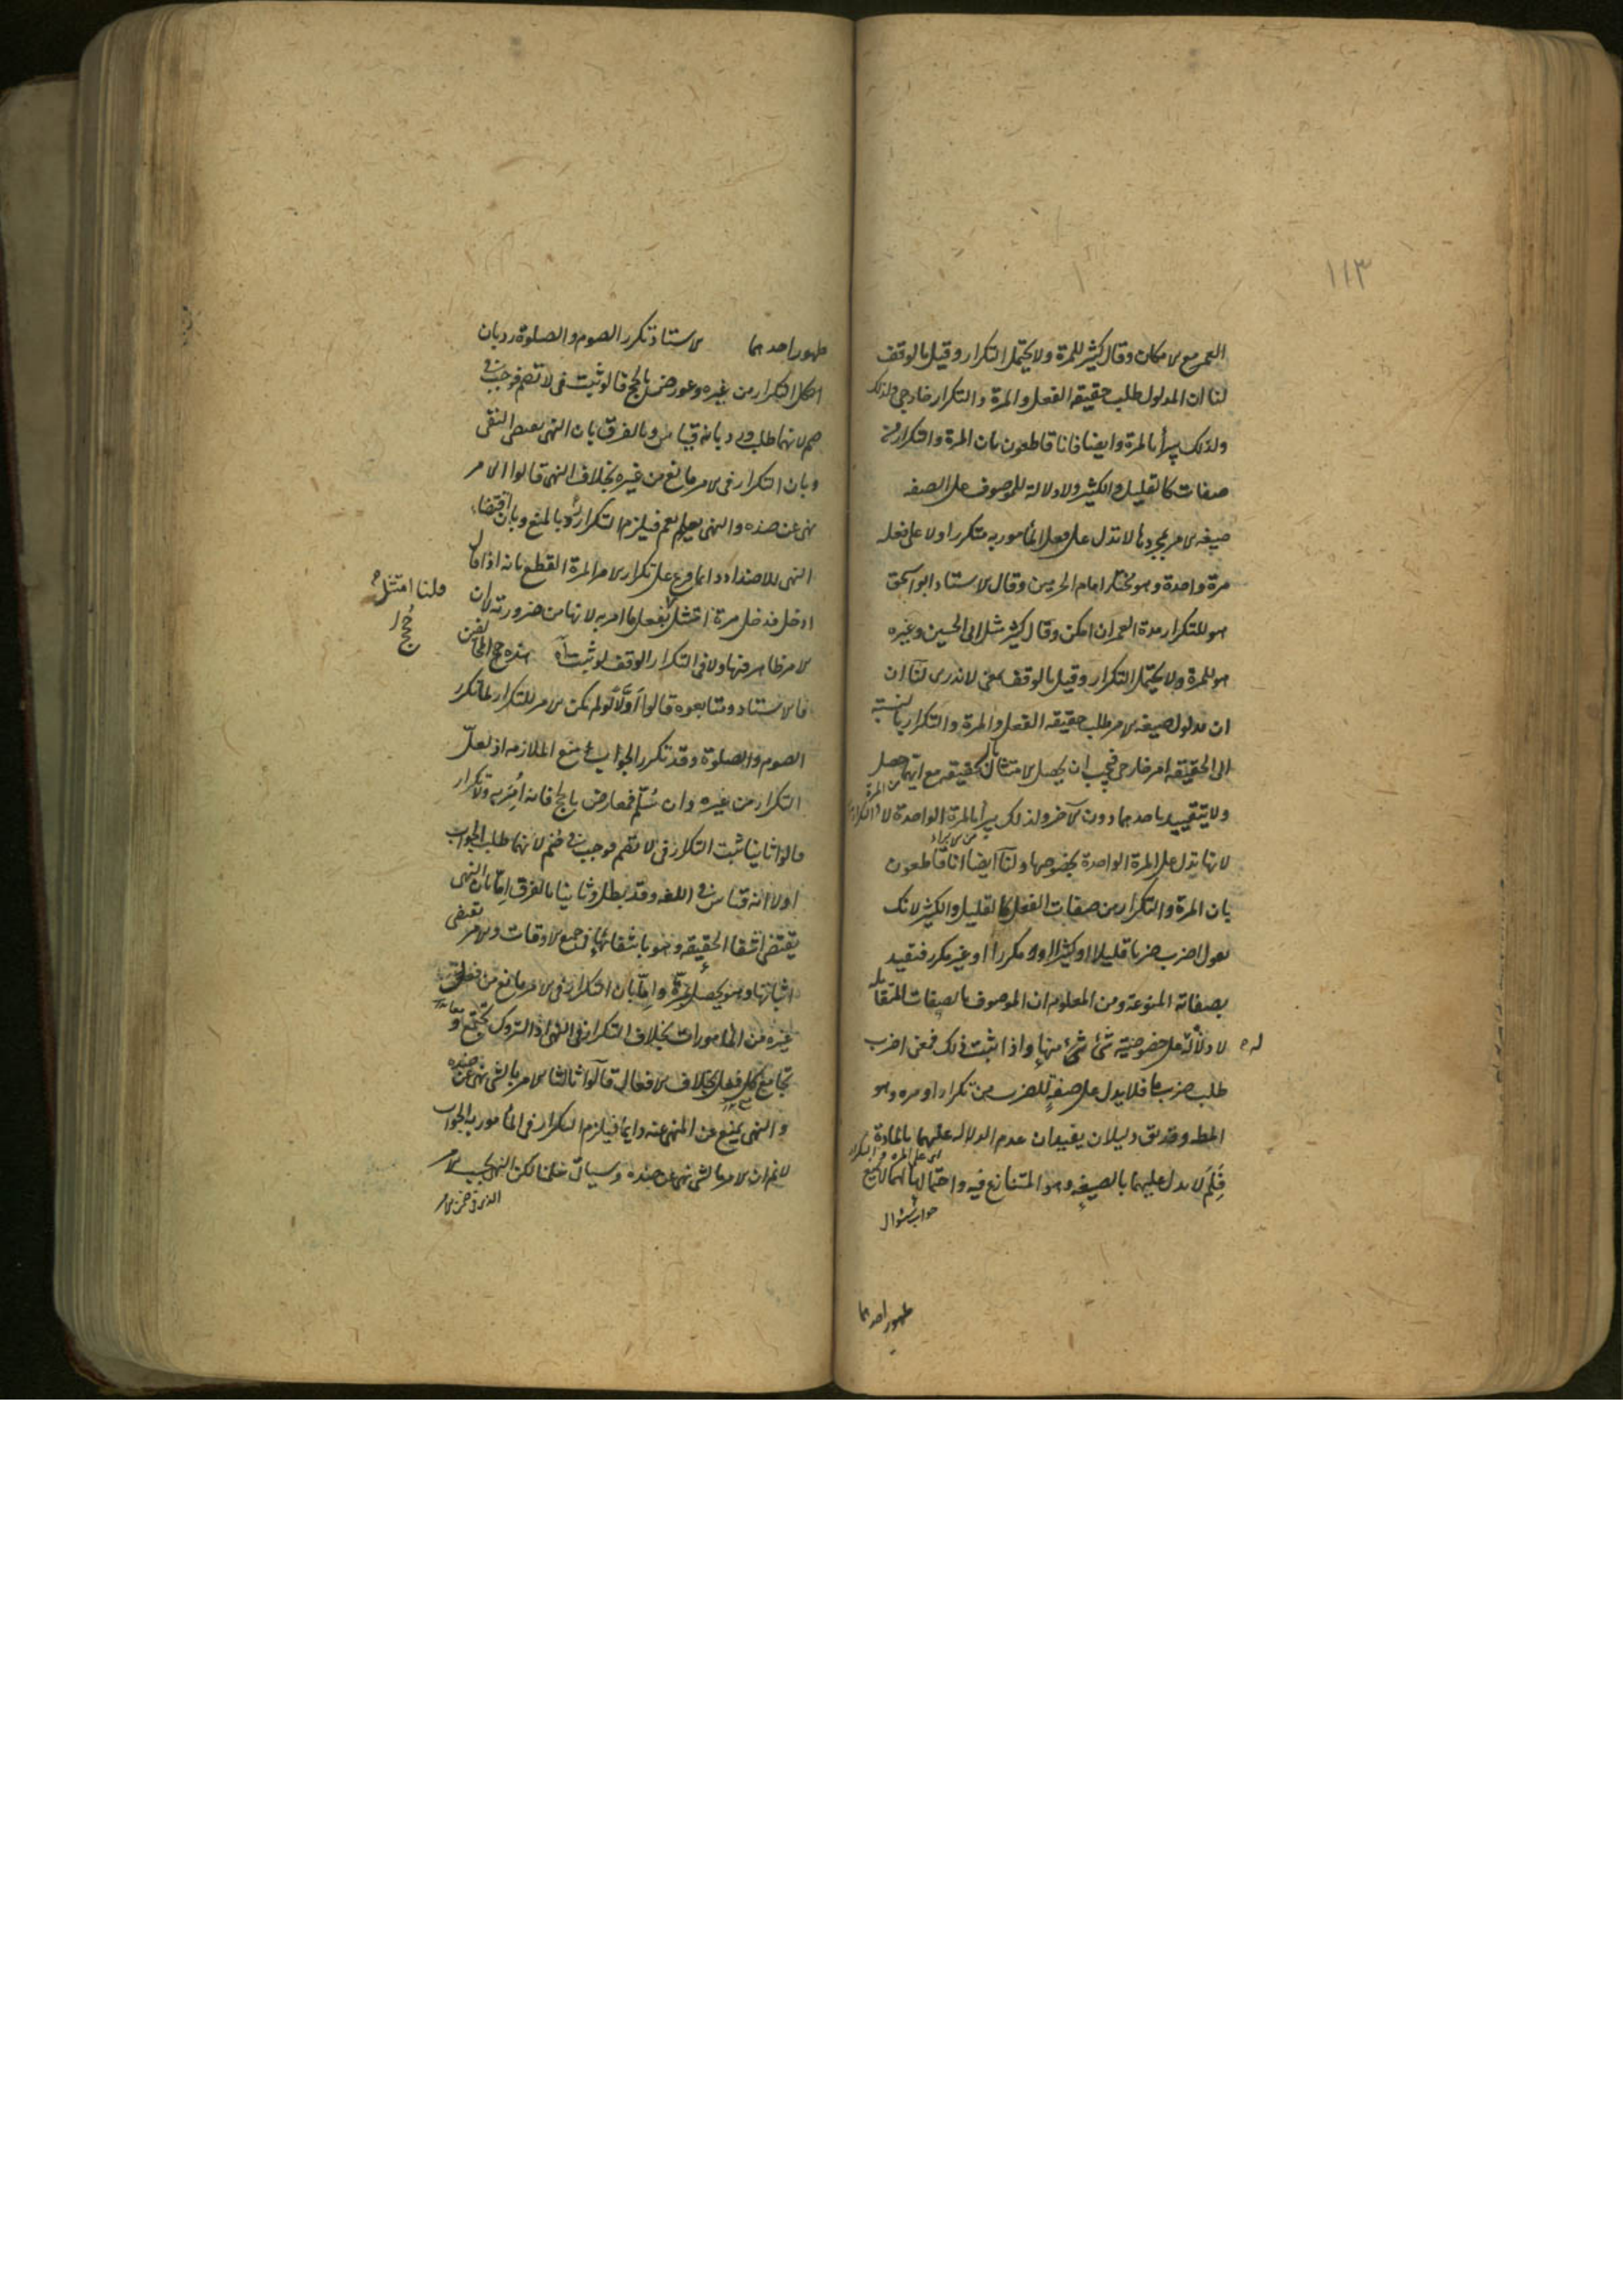 ١١٣
العمر مع الامكان وقال كثير للمرة ولا يحتمل التكرار وقيل بالوقف
لنا ان المدلول طلب حقيقة الفعل والمرة والتكرار خارجي
ولذلك يبرأ بالمرة وايضا فانا قاطعون بان المرة والتكرار من
صفات كالقليل والكثير ولا دلالة للموصوف على الصفه
صيغه الامر بمجردها لا تدل على فعل المأمور به متكررا ولا على فعله
مرة واحدة وهو مختار امام الحرمين وقال الاستاد ابو اسحق
هو للتكرار مدة العمر ان امكن وقال كثير مثل ابى الحسين وغيره
هو للمرة ولا يحتمل التكرار وقيل بالوقف بمعنى لا ندرى لنا ان
ان مدلول صيغه الامر طلب حقيقه الفعل والمرة والتكرار بالنسبة
الى الحقيقه امر خارجى فيجب ان يحصل الامتثال بالحقيقه مع ايتهما حصل
من المرة
ولا يتقييد باحدهما دون الآخر ولذلك يبرأ بالمرة الواحدة لا
لانها تدل على المرة الواحدة بخصوصها ولنا ايضا انا قاطعون
بان المرة والتكرار من صفات الفعل كالقليل والكثير لانك
تقول اضرب ضربا قليلا او كثيرا او مكررا او غير مكرر فتقيد
بصفاته المنوعة ومن المعلوم ان الموصوف بالصفات المتقابله
لا دلالة له على خصوصية شئ شئ منها واذا ثبت ذلك فمعنى اضرب
طلب ضرب ما فلا يدل على صفة للضرب من تكرار او مرة وهو
المط وقد يق دليلان يفيدان عدم الدلاله عليهما بالمادة
اى على المرة والتكرار
فلم لا يدل عليهما بالصيغه وهو المتنازع فيه واحتمالهما لا يمنع
جواب سؤال
ظهور احدهما
ظهور احدهما الاستاد تكرر الصوم والصلوة رد بان
التكرار من غيره وعورض بالحج قالوا ثبت فى لا تصم فوجب فى
صم لانهما طلب رد بانه قياس وبالفرق بان النهى يقتضى النفى
وبان التكرار فى الامر مانع من غيره بخلاف النهى قالوا الامر
نهى عن ضده والنهى يعم فيلزم التكرار رد بالمنع وبان اقتضاء
النهى للاضداد دائما فرع على تكرار الامر المرة القطع بانه اذا قال
ادخل فدخل مرة امتثل بفعل ما امر به لانها من ضرورته لا ان
قلنا امتثل
الامر ظاهر فيها ولا فى التكرار الوقف لو ثبت آه هذه حجج المخالفين
فالاستاد ومتابعوه قالوا اولا لو لم يكن الامر للتكرار لما تكرر
الصوم والصلوة وقد تكرر الجواب منع الملازمه اذ لعل
التكرار من غيره وان سلم فمعارض بالحج فانه امر به ولا تكرار
قالوا ثانيا ثبت التكرار فى لا تصم فوجب فى صم لانهما طلب الجواب
اولا انه قياس فى اللغه وقد بطل وثانيا بالفرق اما بان النهى
يقتضى انتفاء الحقيقه وهو بانتفائها فى جميع الاوقات والامر يقتضى
اثباتها وهو يحصل بمرة واما بان التكرار فى الامر مانع من فعل
غيره من المأمورات بخلاف التكرار فى النهى اذ التروك تجتمع
تجامع كل فعل بخلاف الافعال قالوا ثالثا الامر بالشئ نهى عن ضده
والنهى يمنع عن المنهى عنه دائما فيلزم التكرار فى المأمور به الجواب
لا نم ان الامر بالشئ نهى عن ضده وسياتى سلمنا لكن النهى بحسب الامر
الذى فى ضمن الامر